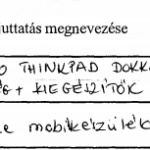 juttatás megnevezése
O THINKPAD DOKK
G + KIEGÉSZÍTŐK
e mobilkészülék